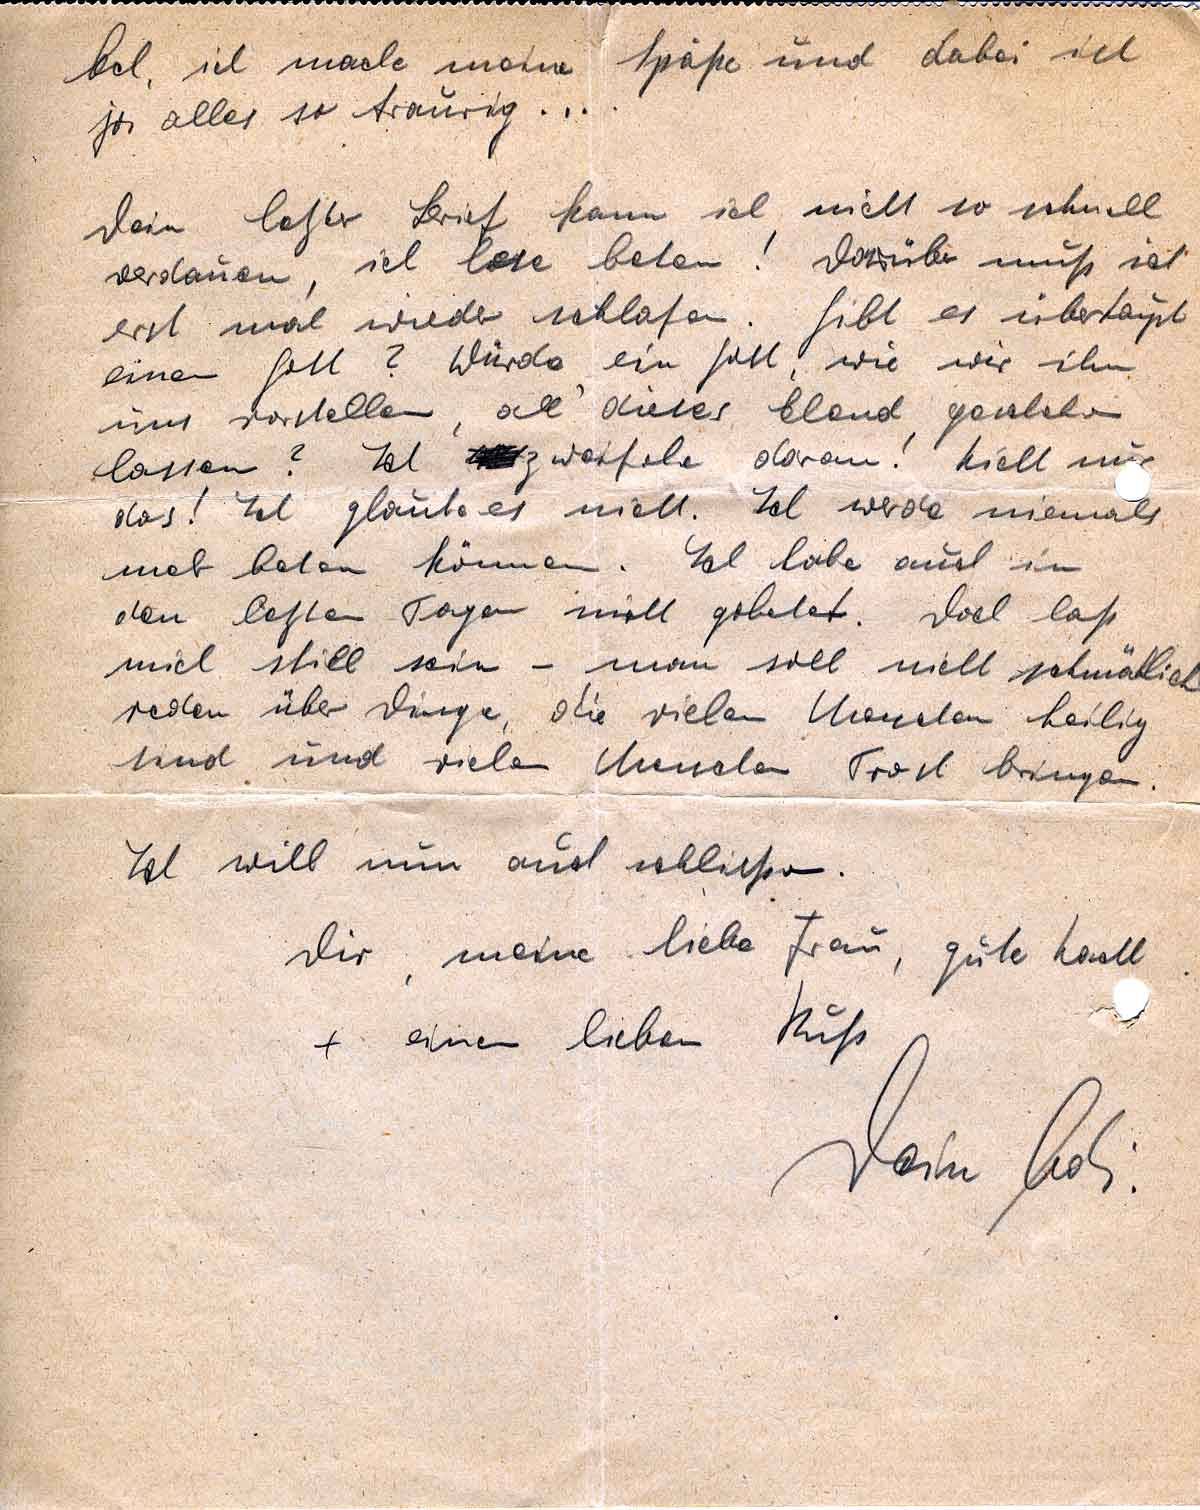 Ach, ich mache meine Späße und dabei ist
ja alles so traurig...
Dein letzter Brief kann ich nicht so schnell
verdauen, ich lese beten! Darüber muß ich
erst mal wieder schlafen. Gibt es überhaupt
einen Gott? Würde ein Gott, wie wir ihn
uns vorstellen, all' dieses Elend geschehen
lassen? Ich zweifele daran! Nicht nur
das! Ich glaube es nicht. Ich werde niemals
mehr beten können. Ich habe auch in
den letzten Tagen nicht gebetet. Doch laß
mich still sein – man soll nicht schmählich
reden über Dinge, die vielen Menschen heilig
sind und vielen Menschen Trost bringen.
Ich will nun auch schließen.
Dir, meine liebe Frau, gute Nacht
+ einen lieben Kuß
Dein